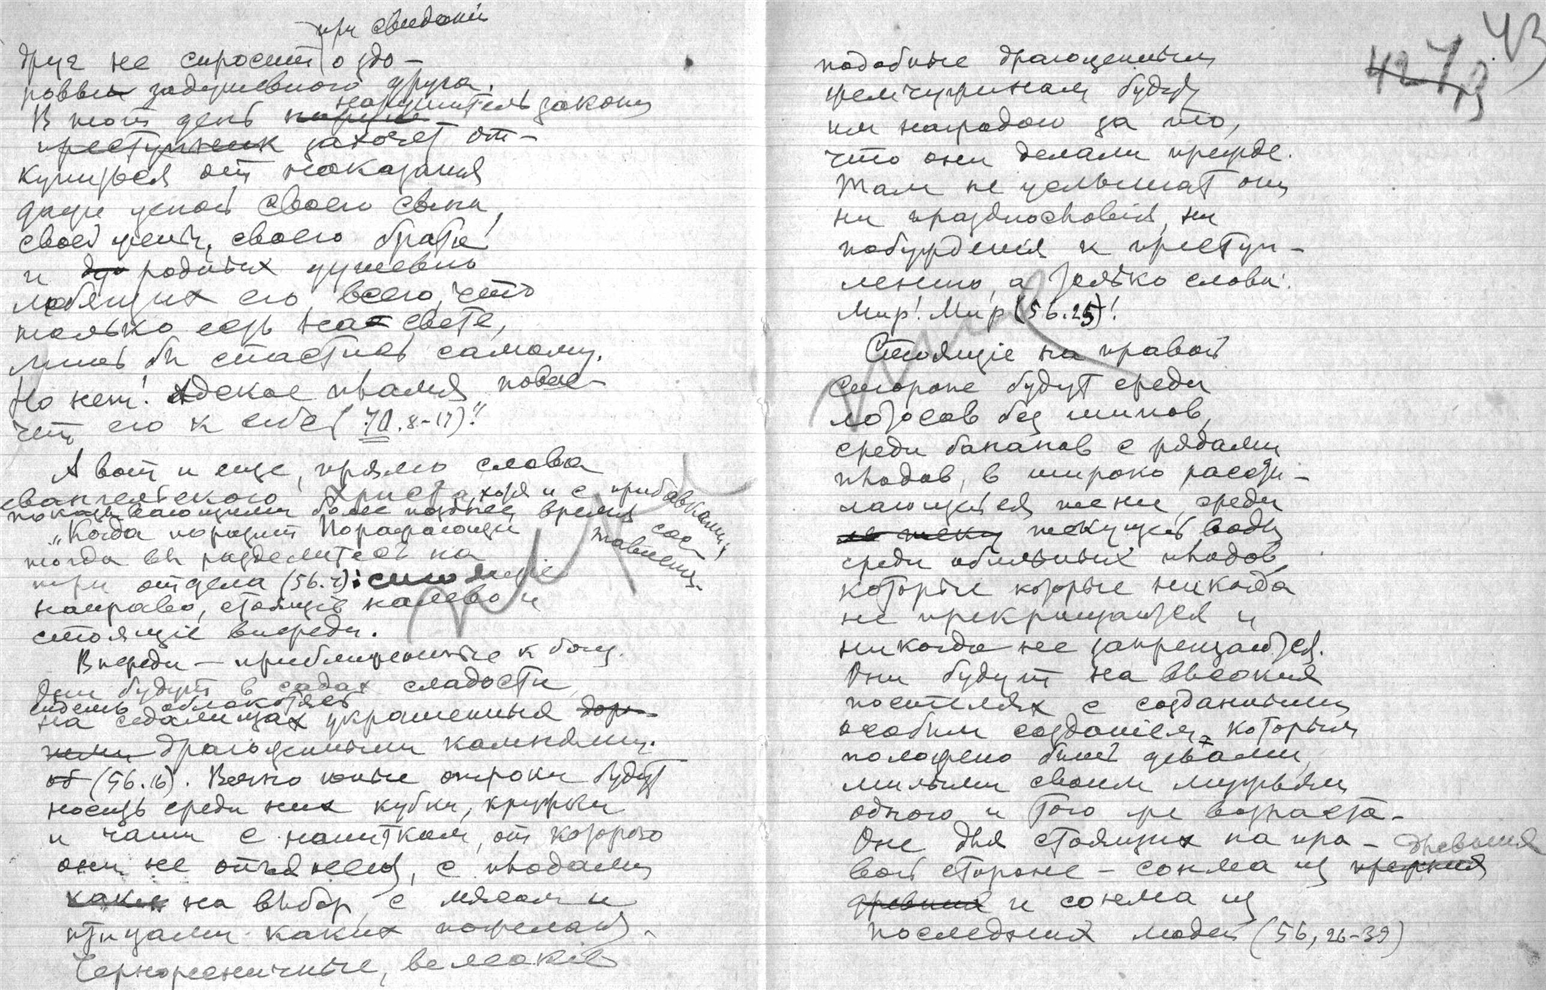 при свидании
друг не спросит о здо-
ровьи задушевного друга.
В тот день нарушитель закона
преступник захочет от-
купиться от наказания
даже ценой своего сына,
своей жены, своего брата
и родных душевно
любящих его, всего, что
только есть на свете,
лишь бы спастись самому.
Но нет! Адское пламя повле-
чет его к себе (70.8-17)."
А вот и еще, прямо слова
евангельского Христа, хотя и с прибавками,
показывающими более позднее время состав-
ления.
„Когда поразит Поражающий
тогда вы разделитесь на
три отдела (56.7): стоящие
направо, стоящие налево и
стоящіе впереди.
Впереди — приближенные к богу.
Они будут в садах сладости
сидеть облокотясь
на седалищах украшенных
драгоценными камнями.
(56.16). Вечно юные отроки будут
носить среди них кубки, кружки
и чаши с напитком, от которого
они не опьянеют, с плодами
на выбор, с мясом и
птицами каких пожелают.
Черноресничные, великие
43
42
подобные драгоценным
жемчужинам будут
им наградою за то,
что они делали прежде.
Там не услышат они
ни празднословія, ни
побужденія к преступ-
лению, а только слова:
Мир! Мир (56.25)!
Стоящіе на правой
стороне будут среди
лотосов без шипов,
среди бананов с рядами
плодов, в широко рассти-
лающейся тени, среди
текущей воды
среди обильных плодов,
которые которые никогда
не прекращаются и
никогда не запрещаются.
Они будут на высоких
постелях с созданными
особым созданіем, которым
положено быть девами,
милыми своим мужьям
одного и того же возраста.
Оне для стоящих на пра-
вой стороне — сонма из прежних древних
древних и сонма из
последних людей (56, 26-39)